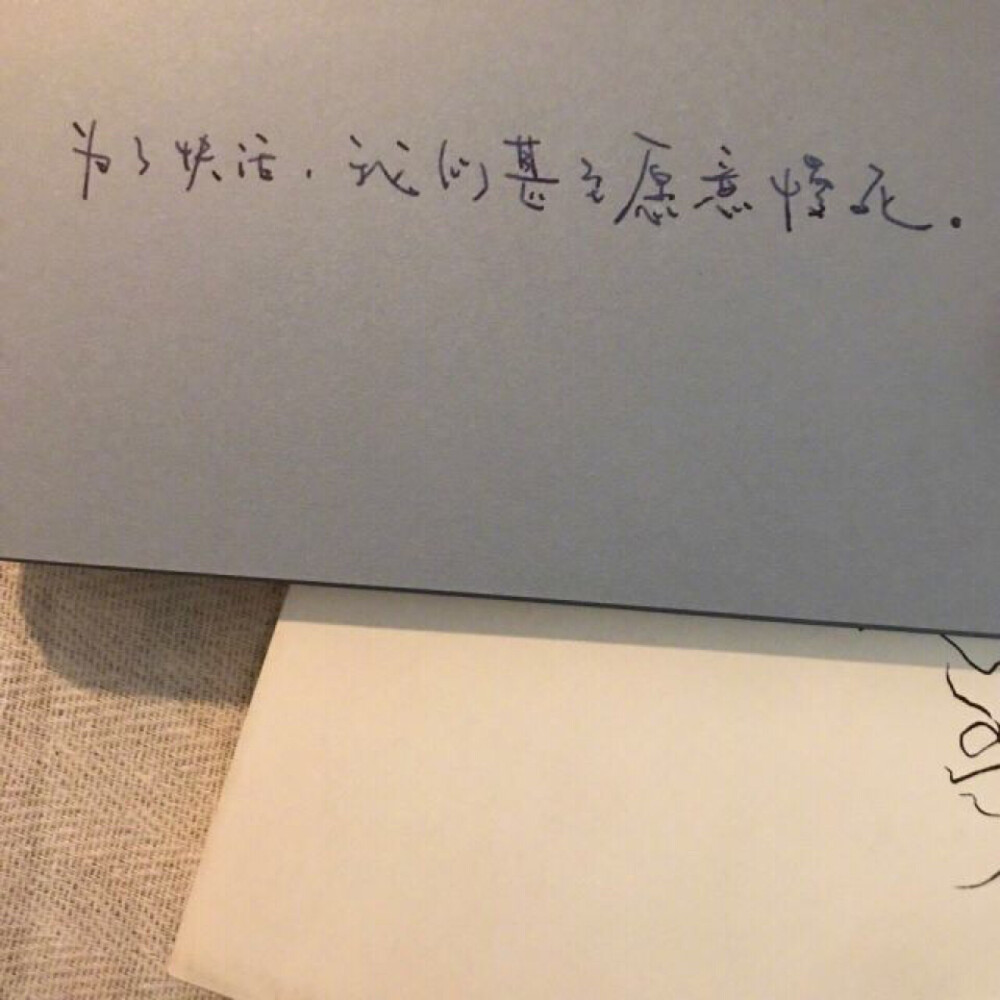 为了快活，我们甚至愿意慢死。